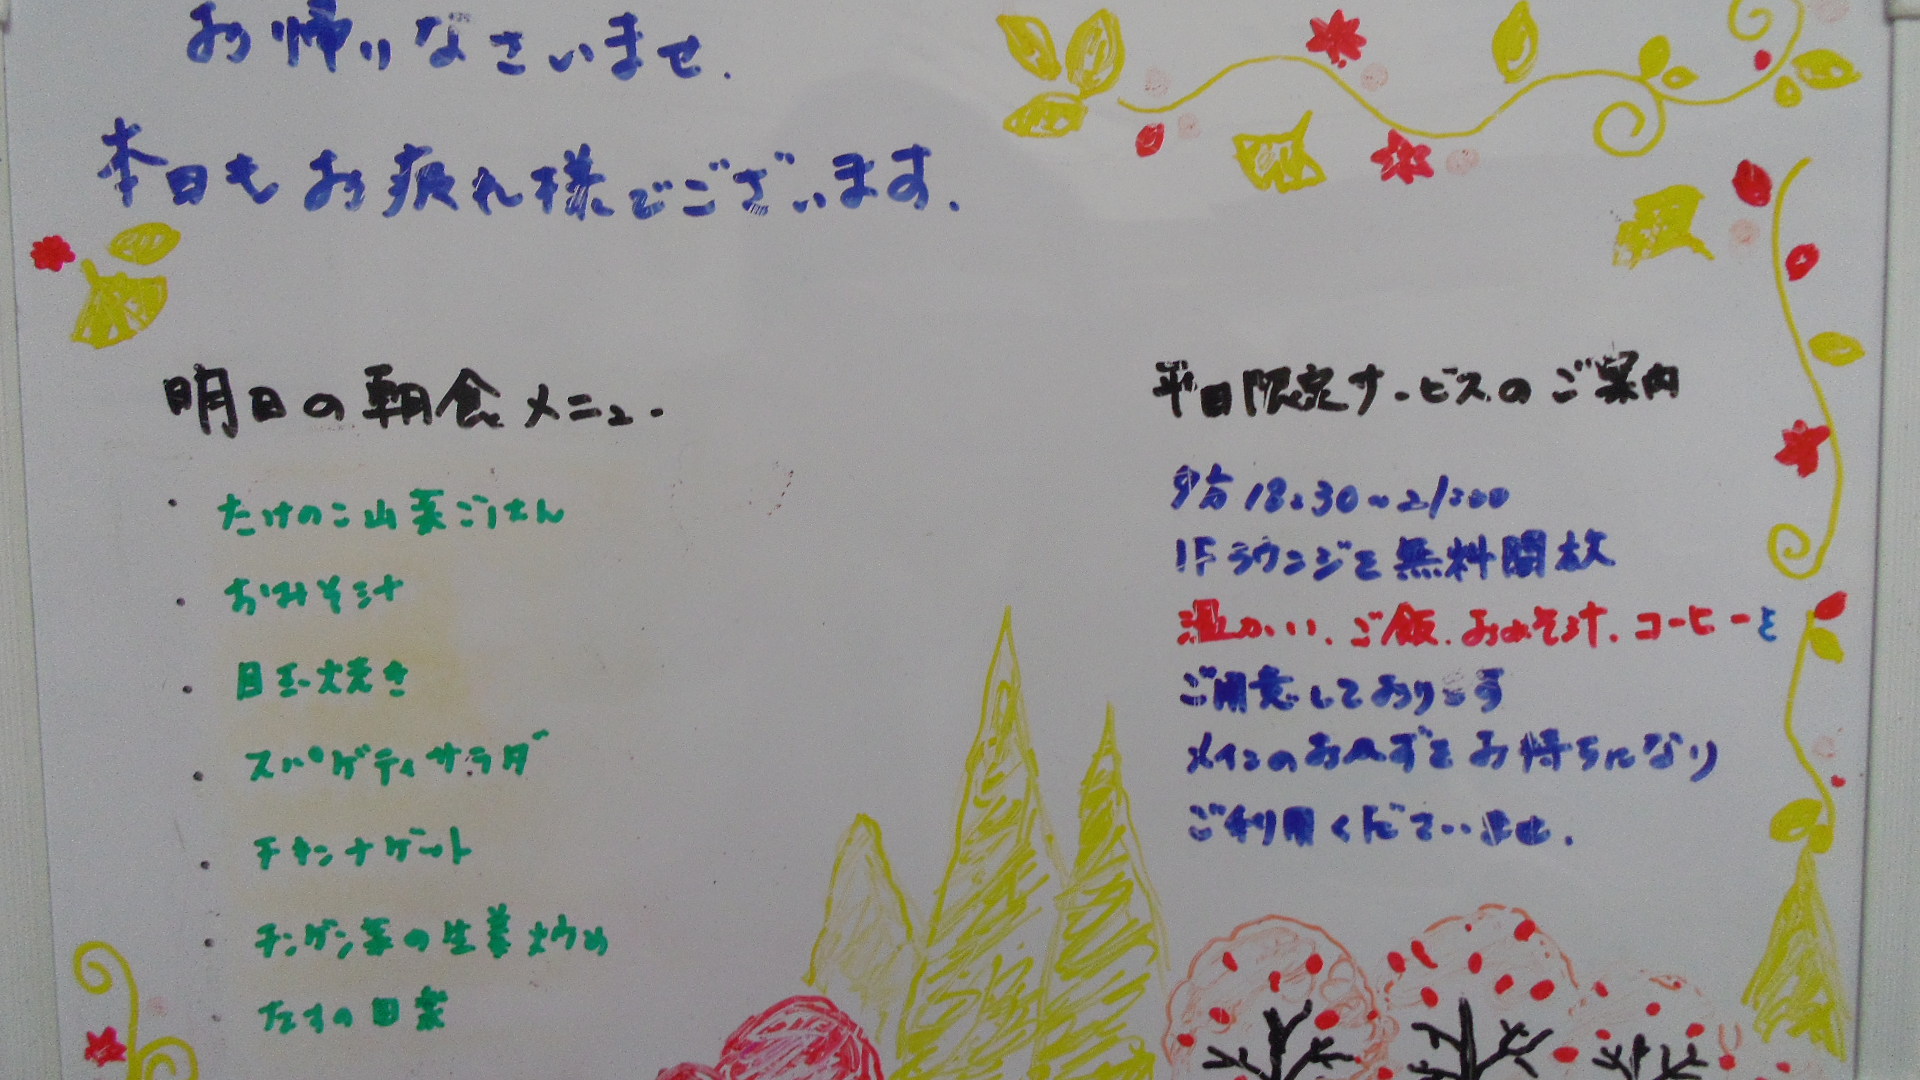 お帰りなさいませ.
本日もお疲れ様でございます.
明日の朝食メニュー
・たけのこ山菜ごはん
・おみそ汁
・目玉焼き
・スパゲティサラダ
・チキンナゲット
・チンゲン菜の生姜炒め
・なすの田楽
平日限定サービスのご案内
夕方 18:30~21:00
1Fラウンジを無料開放
温かい、ご飯、おみそ汁、コーヒーを
ご用意しております
メインのおかずをお持ちになり
ご利用くださいませ.